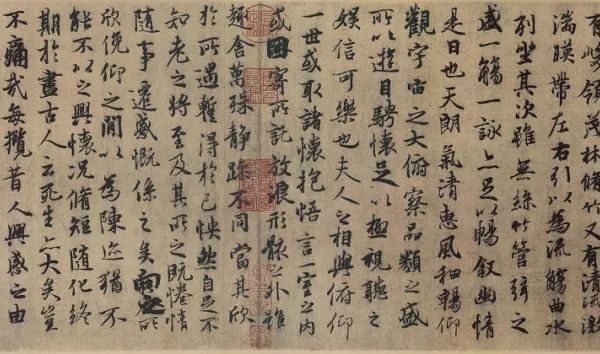 有峻領茂林脩竹又有清流激
湍暎帶左右引以為流觴曲水
列坐其次雖無絲竹管弦之
盛一觴一詠亦足以暢敘幽情
是日也天朗氣清惠風和暢仰
觀宇宙之大俯察品類之盛
所以遊目騁懷足以極視聽之
娛信可樂也夫人之相與俯仰
一世或取諸懷抱悟言一室之內
或因寄所託放浪形骸之外雖
趣舍萬殊靜躁不同當其欣
於所遇暫得於己怏然自足不
知老之將至及其所之既惓情
隨事遷感慨係之矣向之所
欣俛仰之間以為陳迹猶不
能不以之興懷況脩短隨化終
期於盡古人云死生亦大矣豈
不痛哉每攬昔人興感之由